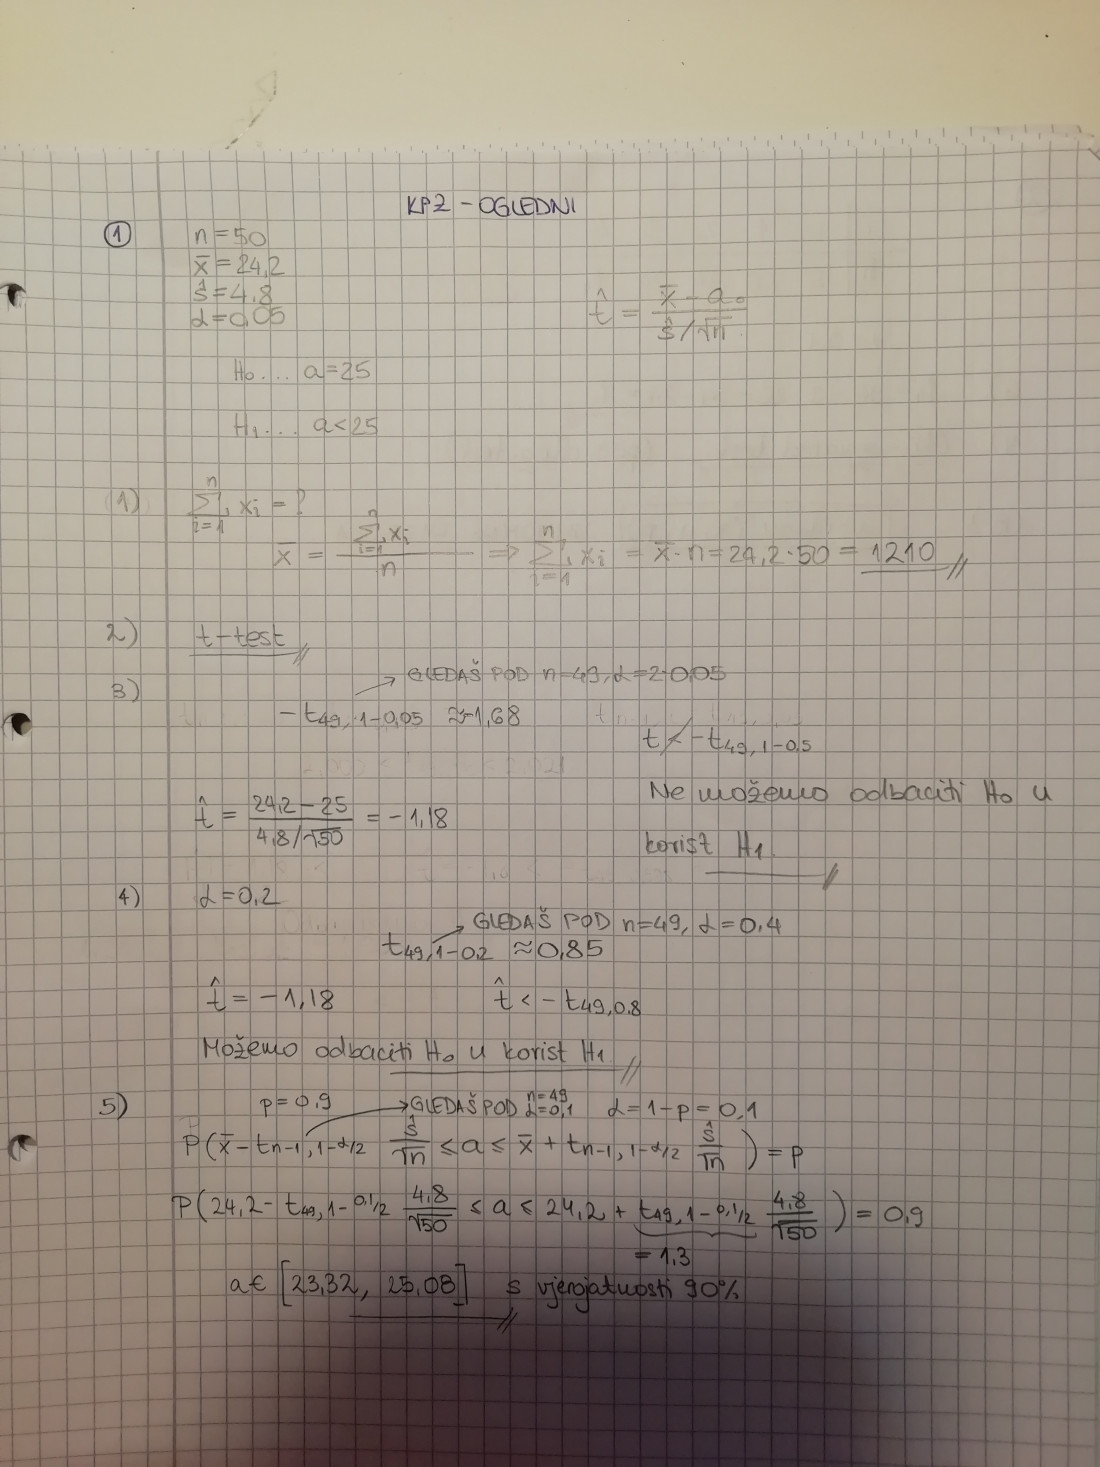 KPZ - OGLEDNI
① n = 50
x̄ = 24,2
ŝ = 4,8
α = 0,05
t̂ = (x̄ - a₀) / (ŝ/√n)
H₀ .... a = 25
H₁ .... a < 25
1) ∑ᵢ₌₁ⁿ xᵢ = ?
x̄ = (∑ᵢ₌₁ⁿ xᵢ) / n ⇒ ∑ᵢ₌₁ⁿ xᵢ = x̄ · n = 24,2 · 50 = 1210
2) t-test
3) → GLEDAŠ POD n=49, α=2·0,05
-t₄₉, ₁₋₀,₀₅ ≈ -1,68
t ≮ -t₄₉, ₁₋₀,₅
t̂ = (24,2 - 25) / (4,8/√50) = -1,18
Ne možemo odbaciti H₀ u
korist H₁
4) α = 0,2
→ GLEDAŠ POD n=49, α=0,4
t₄₉, ₁₋₀,₂ ≈ 0,85
t̂ = -1,18 t̂ < -t₄₉, ₀,₈
Možemo odbaciti H₀ u korist H₁
5) p = 0,9 → GLEDAŠ POD n=49 α=0,1 α = 1-p = 0,1
P(x̄ - tₙ₋₁, ₁₋α/₂ ŝ/√n ≤ a ≤ x̄ + tₙ₋₁, ₁₋α/₂ ŝ/√n) = p
P(24,2 - t₄₉, ₁₋₀,₁/₂ 4,8/√50 ≤ a ≤ 24,2 + t₄₉, ₁₋₀,₁/₂ 4,8/√50) = 0,9
= 1,3
a ∈ [23,32, 25,08] s vjerojatnosti 90%